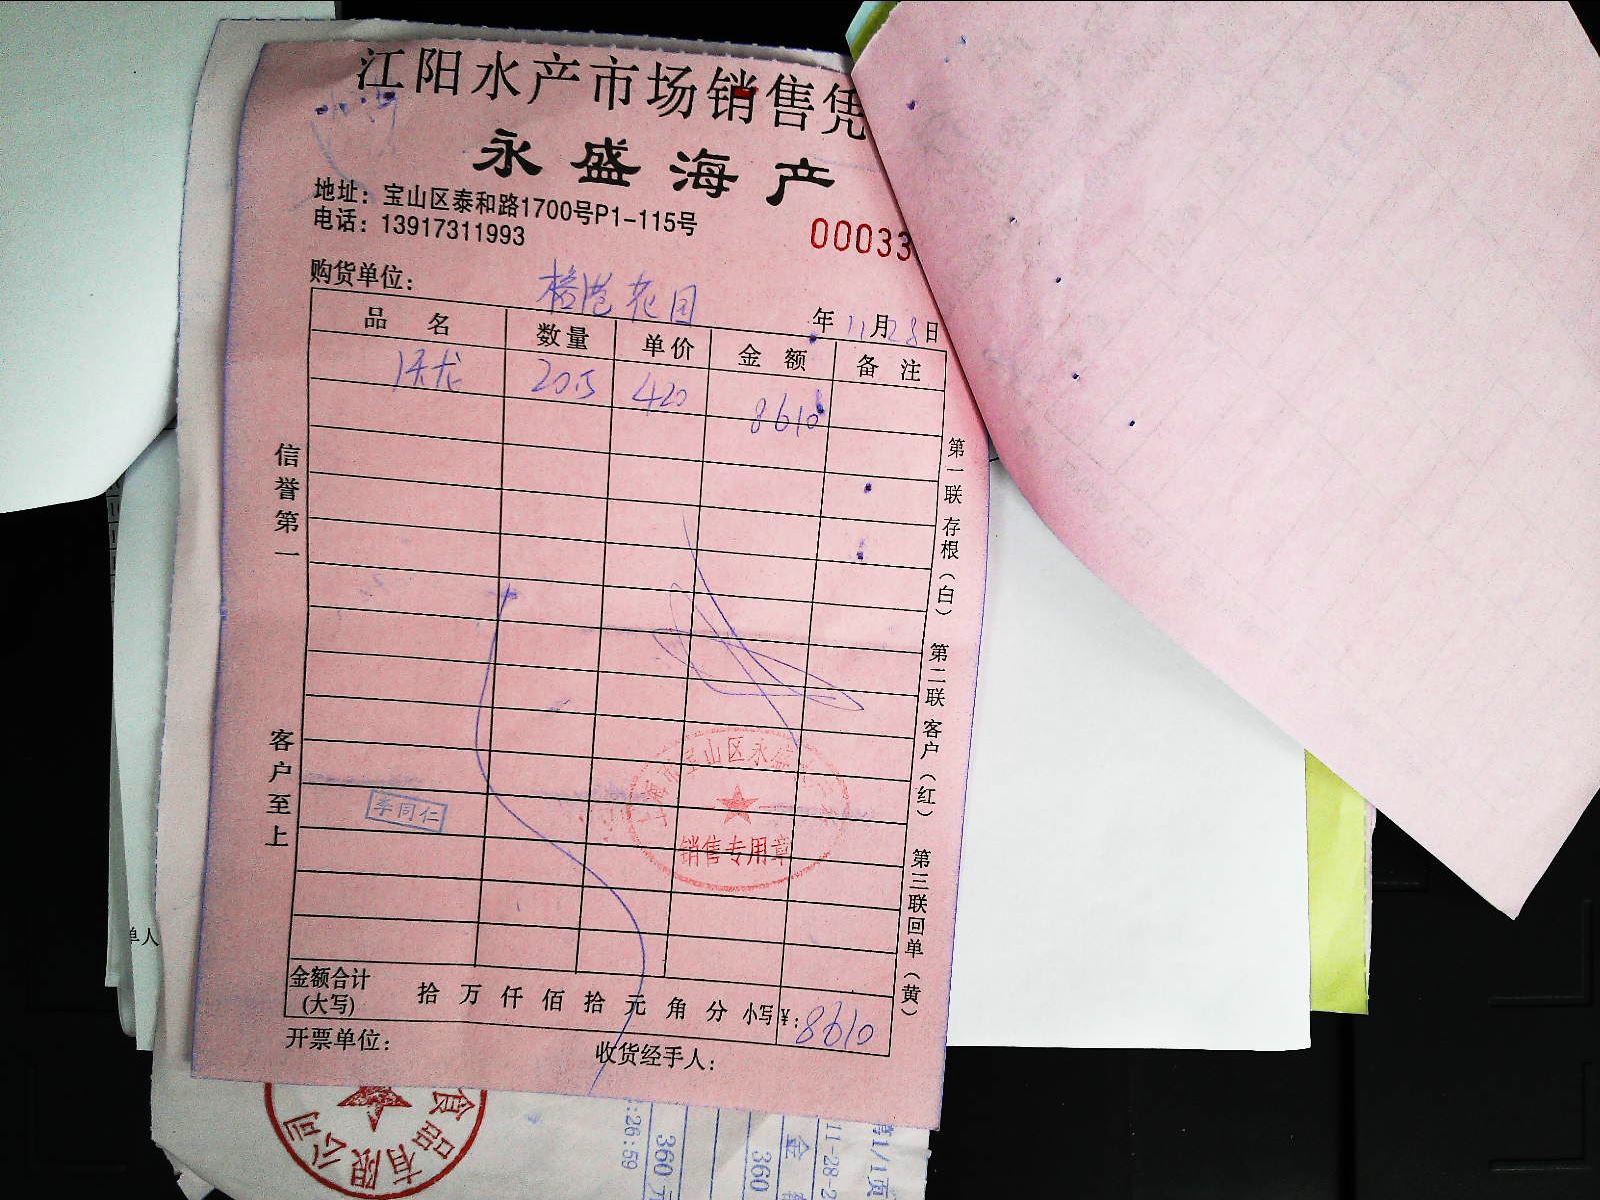 江阳水产市场销售凭
永盛海产
地址：宝山区泰和路1700号P1-115号
电话：13917311993
00033
购货单位：
花园
年11月28日
品名 数量 单价 金额 备注
沃龙 20.5 420 8610
信誉第一
客户至上
第一联 存根（白） 第二联 客户（红） 第三联 回单（黄）
李同仁
宝山区永盛
销售专用章
金额合计（大写） 拾 万 仟 佰 拾 元 角 分 小写¥：8610
开票单位： 收货经手人：
单人
食品有限公司
:26:59
360
360
金
11-28-2
1/1页